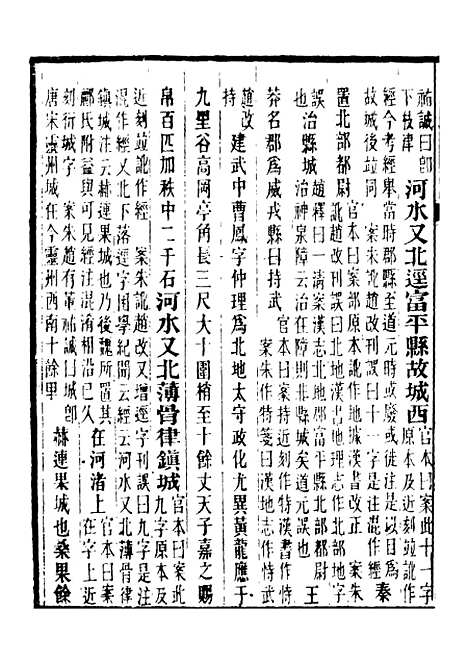 祐誠曰卽
下枝津
河水又北逕富平縣故城西
官本曰案此十一字
原本及近刻竝訛作
經今考經舉當時郡縣至道元時或廢或徙注是以目爲
故城後竝同 案朱訛趙改刊誤曰十一字是注混作經
秦
置北部都尉
官本曰案部原本訛作地據漢書改正 案朱
訛趙改刊誤曰北地漢書地理志作北部地字
誤也
治縣城
趙釋曰一清案漢志北部都尉
治神泉障云治在障則非縣城矣道元誤也
王
莽名郡爲威戎縣曰持武
官本曰案近刻作特漢書作特武
案朱作特箋曰漢地志作特武
趙改
持
建武中曹鳳字仲理爲北地太守政化尤異黃龍應于
九里谷高岡亭角長三尺大十圍梢至十餘丈天子嘉之賜
帛百匹加秩中二千石河水又北薄骨律鎮城
官本曰案此
九字原本及
近刻竝訛作經 案朱訛趙改又增逕字刊誤曰九字是注
混作經又北下落逕字困學紀聞云經云河水又北薄骨律
鎮城注云赫連果城也乃後魏所置
酈氏附益與經注混淆相沿已久
在河渚上
官本曰案
在字上近
刻衍城字 案朱趙有董祐誠曰城卽
唐宋靈州城在今靈州西南十餘里
赫連果城也桑果餘